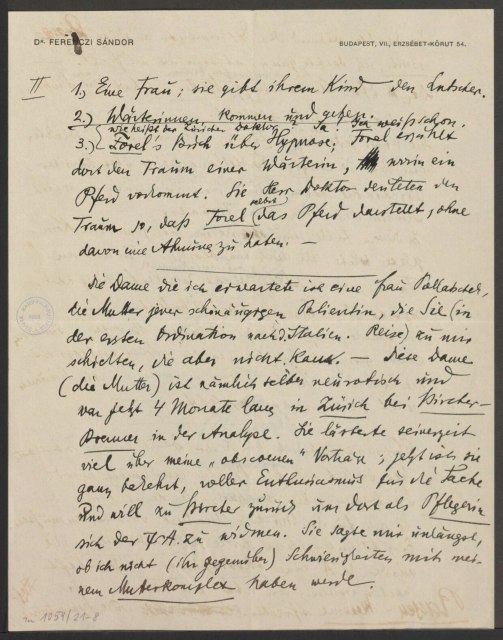 Dr. FERENCZI SÁNDOR
BUDAPEST, VII., ERZSÉBET-KÖRUT 54.
II 1.) Eine Frau; sie gibt ihrem Kind den Lutscher.
2.) Wärterinnen kommen und gehen.
wie heißt der Züricher Doktor Ja! Ich weiß schon.
3.) Forel's Buch über Hypnose; Forel erzählt
dort den Traum einer Wärterin, worin ein
Pferd vorkommt. Sie Herr Doktor deuteten den
Traum so, daß Forel selbst das Pferd darstellt, ohne
davon eine Ahnung zu haben. —
Die Dame die ich erwartete ist eine Frau
die Mutter jener schönäugigen Patientin, die Sie (in
der ersten Ordination nach d. Italien. Reise) zu mir
schickten, die aber nicht kam. — Diese Dame
(die Mutter) ist nämlich selber neurotisch und
war jetzt 4 Monate lang in Zürich bei Bircher-
Brenner in der Analyse. Sie lästerte seinerzeit
viel über meine „obscoenen" Vorträge; jetzt ist sie
ganz bekehrt, voller Enthusiasmus für die Sache
und will zu Bircher zurück um dort als Pflegerin
sich der ΨA. zu widmen. Sie sagte mir unlängst,
ob ich nicht (ihr gegenüber) Schwierigkeiten mit mei-
nem Mutterkomplex haben werde.
1054/21-8